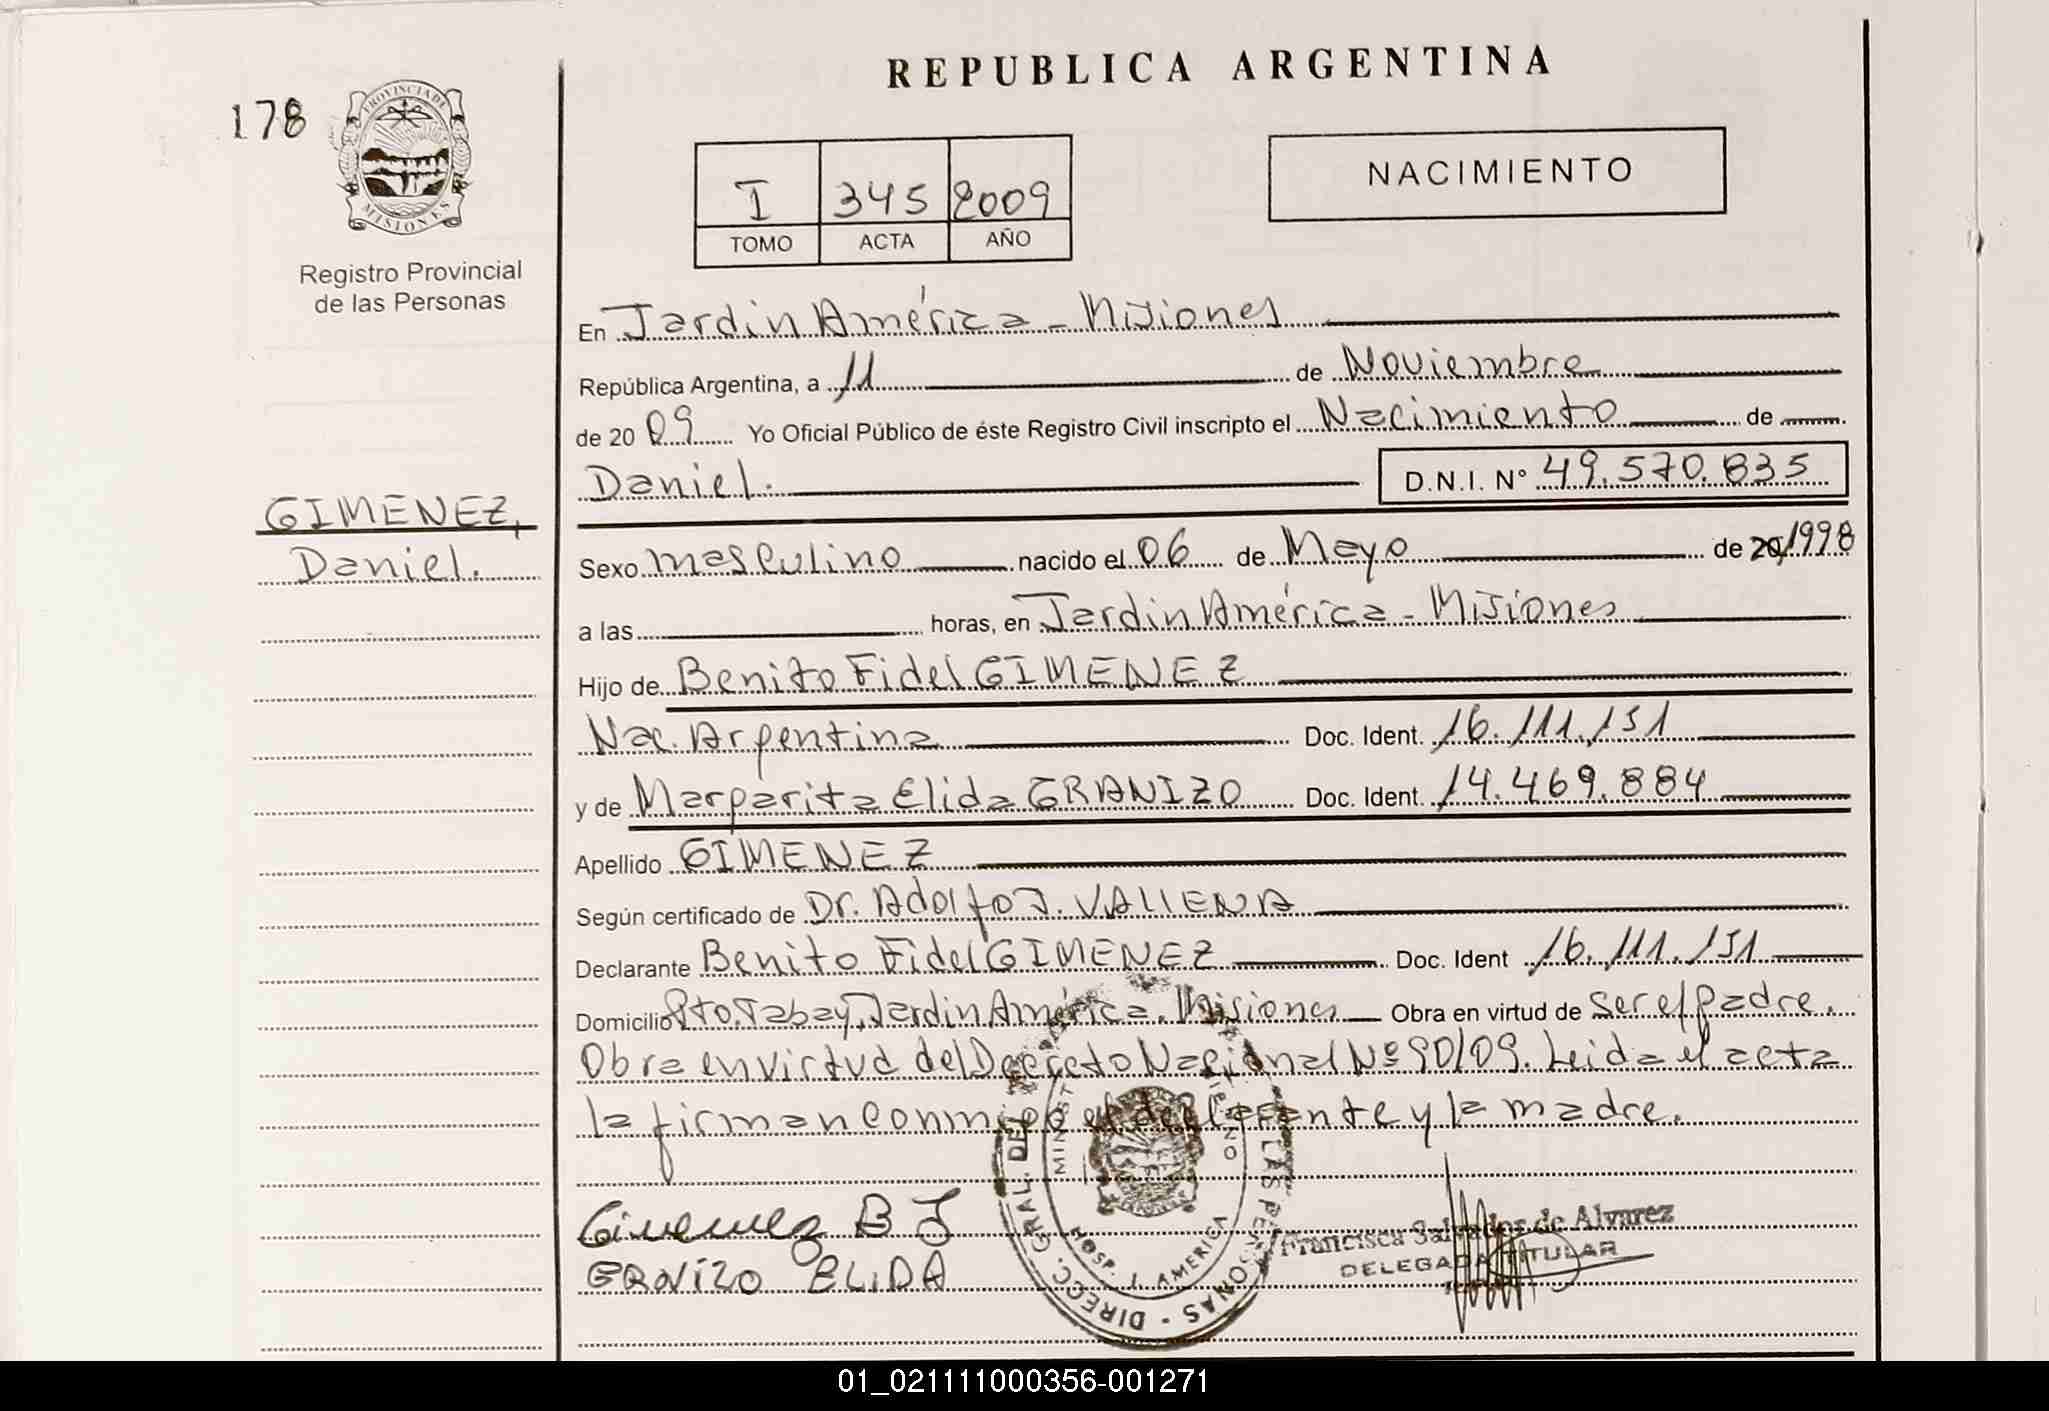 REPUBLICA ARGENTINA
178
PROVINCIA DE
MISIONES
Registro Provincial
de las Personas
I 345 2009
TOMO ACTA AÑO
NACIMIENTO
En Jardin América - Misiones
República Argentina, a 11 de Noviembre
de 20 09 Yo Oficial Público de éste Registro Civil inscripto el Nacimiento de
Daniel. D.N.I. N° 49.570.835
GIMENEZ,
Daniel.
Sexo masculino nacido el 06 de Mayo de 20/1998
a las horas, en Jardin América - Misiones
Hijo de Benito Fidel GIMENEZ
Nac. Argentina Doc. Ident. 16.111.151
y de Margarita Elida GRANIZO Doc. Ident. 14.469.884
Apellido GIMENEZ
Según certificado de Dr. Adolfo J. VALLENA
Declarante Benito Fidel GIMENEZ Doc. Ident 16.111.151
Domicilio Pto. Tabay, Jardin América. Misiones Obra en virtud de ser el padre.
Obra en virtud del Decreto Nacional Nº 90/09. Leida el acta
la firman conmigo el declarante y la madre.
Gimenez B F
GRNIZO ELIDA
DIRECC. GRAL. DE LAS PERSONAS
HOSP. J. AMERICA
Francisca Salvador de Alvarez
DELEGADA TITULAR
01_021111000356-001271